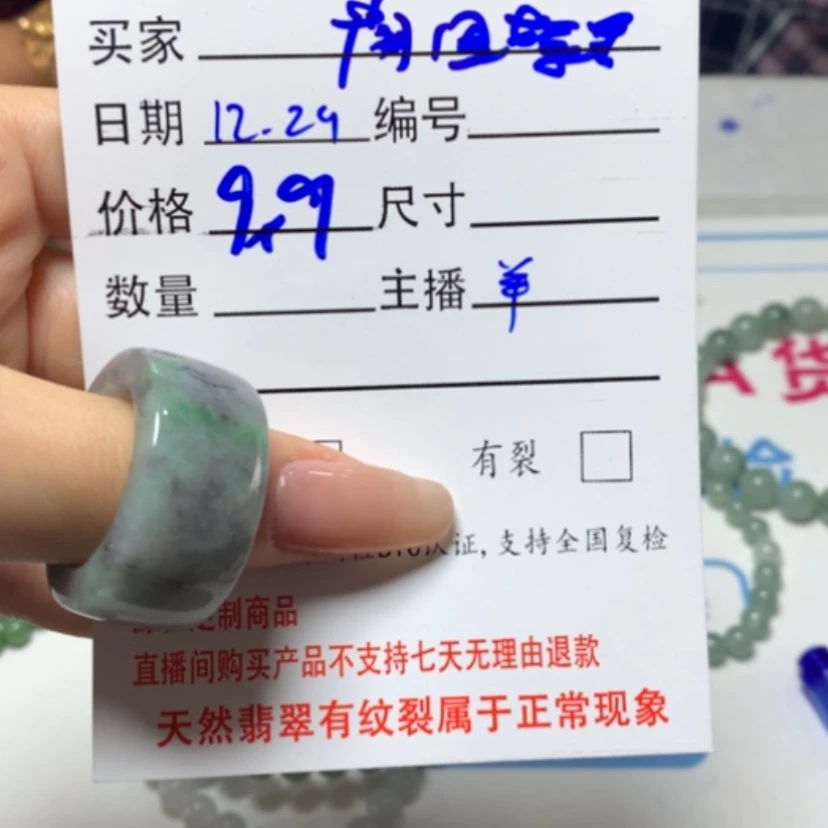 买家
日期 12.24 编号
价格 9.99 尺寸
数量 主播
有裂
证,支持全国复检
定制商品
直播间购买产品不支持七天无理由退款
天然翡翠有纹裂属于正常现象
A货